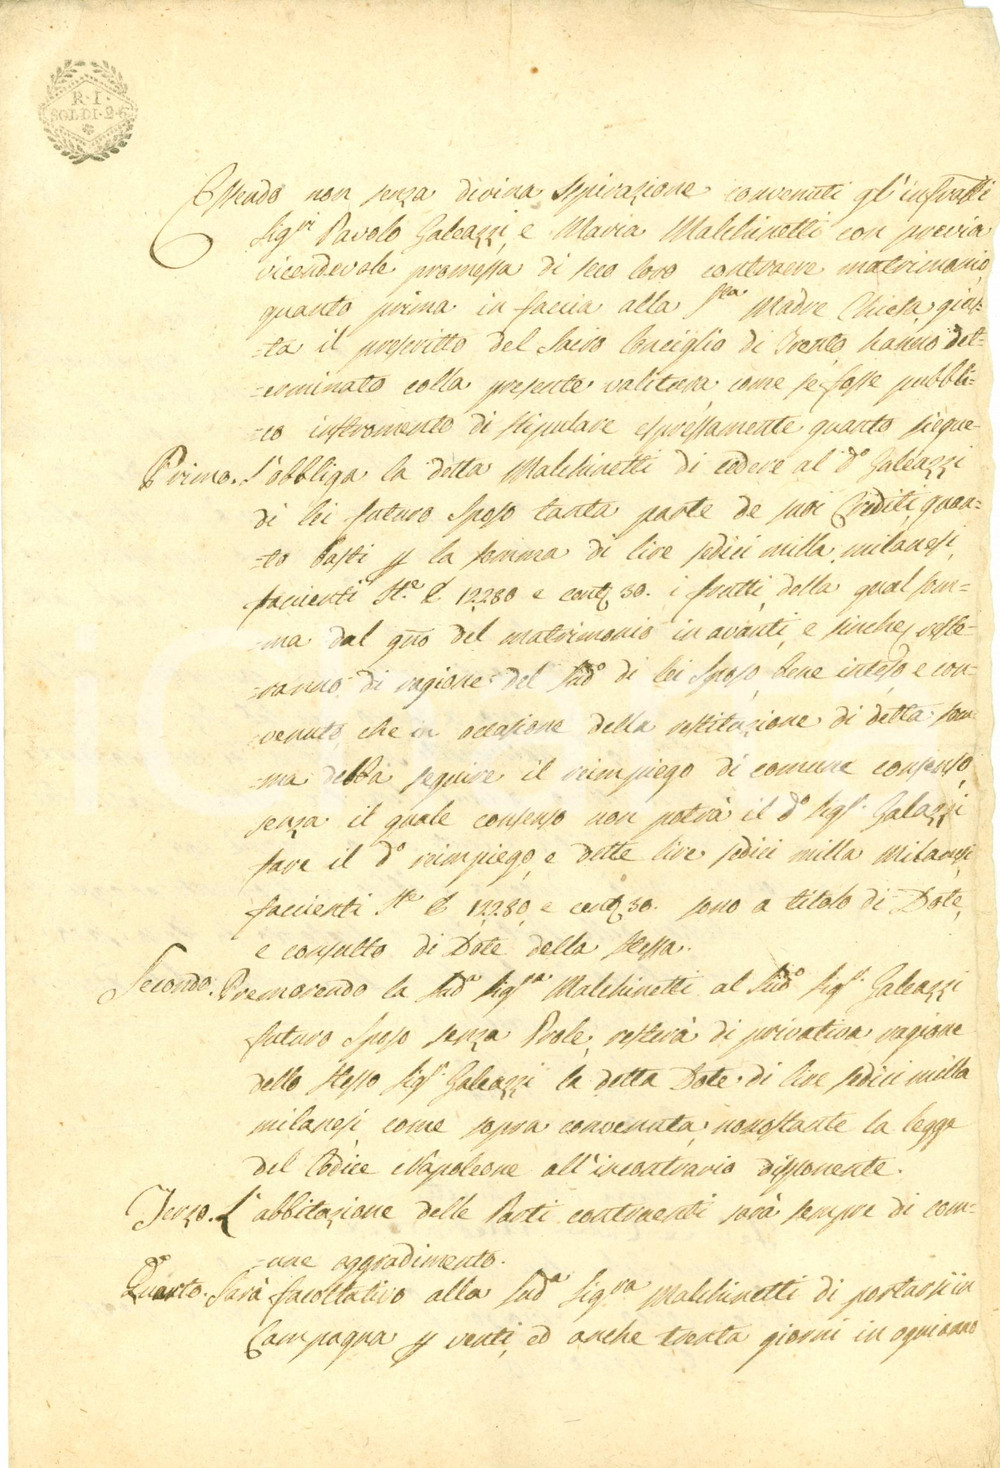 R·I·
SOLDI·2·6
Essendo non senza divina Spirazione convenuti gl'infratti
Sigri Pavolo Galeazzi, e Maria Malchinetti con previa
vicendevole promessa di seco loro contraere matrimonio,
quanto prima in faccia alla Sta Madre Chiesa, gius-
-ta il prescritto del Sacro Conciglio di Trento, hanno det-
-terminato colla presente valitura, come se fosse pubbli-
-co instromento di stipulare espressamente quanto siegue
Primo. S'obbliga la detta Malchinetti di cedere al do Galeazzi
di lei futuro Sposo tanta parte de suoi Crediti, quan-
-to basti p la somma di lire sedici milla, milanesi,
faccienti Ite £ 12280 e cent. 30. i frutti della qual som-
-ma dal gno del matrimonio in avanti, e sinche reste-
-ranno di ragione del sudo di lei Sposo, bene inteso, e con-
-venuto, che in occasione della restituzione di detta som-
-ma debba seguire il reimpiego di comune consenso,
senza il quale consenso non potrà il do Sigr. Galazzi
fare il do reimpiego, e dette lire sedici milla Milanesi
faccienti Ite £ 12280, e cent. 30. sono a titolo di Dote,
e consulto di Dote della stessa.
Secondo. Premorendo la suda Sigra Malchinetti al sudo Sigr. Galeazzi
futuro Sposo senza Prole, resterà di privativa ragione
dello stesso Sigr Galeazzi la detta Dote di lire sedici milla
milanesi, come sopra convenuta, nonostante la legge
del Codice Napoleone all'incontrario disponente.
Terzo. L'abbitazione delle Parti contraenti sarà sempre di com-
-une aggradimento.
Quarto. Sarà facoltativo alla suda Sigra Malchinetti di portarsi in
Campagna p venti, ed anche trenta giorni in ogni anno